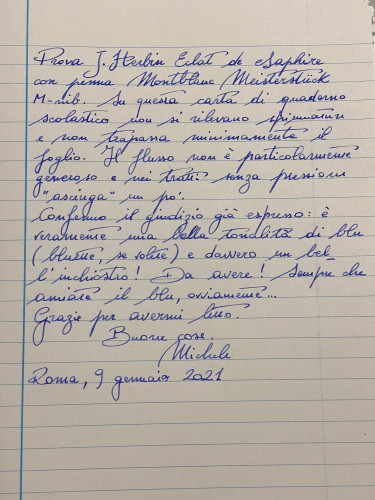 Prova J. Herbin Eclat de Saphire
con penna Montblanc Meisterstück
M-nib. Su questa carta di quaderno
scolastico non si rilevano spiumature
e non trapassa minimamente il
foglio. Il flusso non è particolarmente
generoso e nei tratti senza pressione
"asciuga" un po'.
Confermo il giudizio già espresso: è
veramente una bella tonalità di blu
(bluette, se volete) e davvero un bel-
l'inchiostro! Da avere! Sempre che
amiate il blu, ovviamente...
Grazie per avermi letto.
Buone cose.
Michele
Roma, 9 gennaio 2021